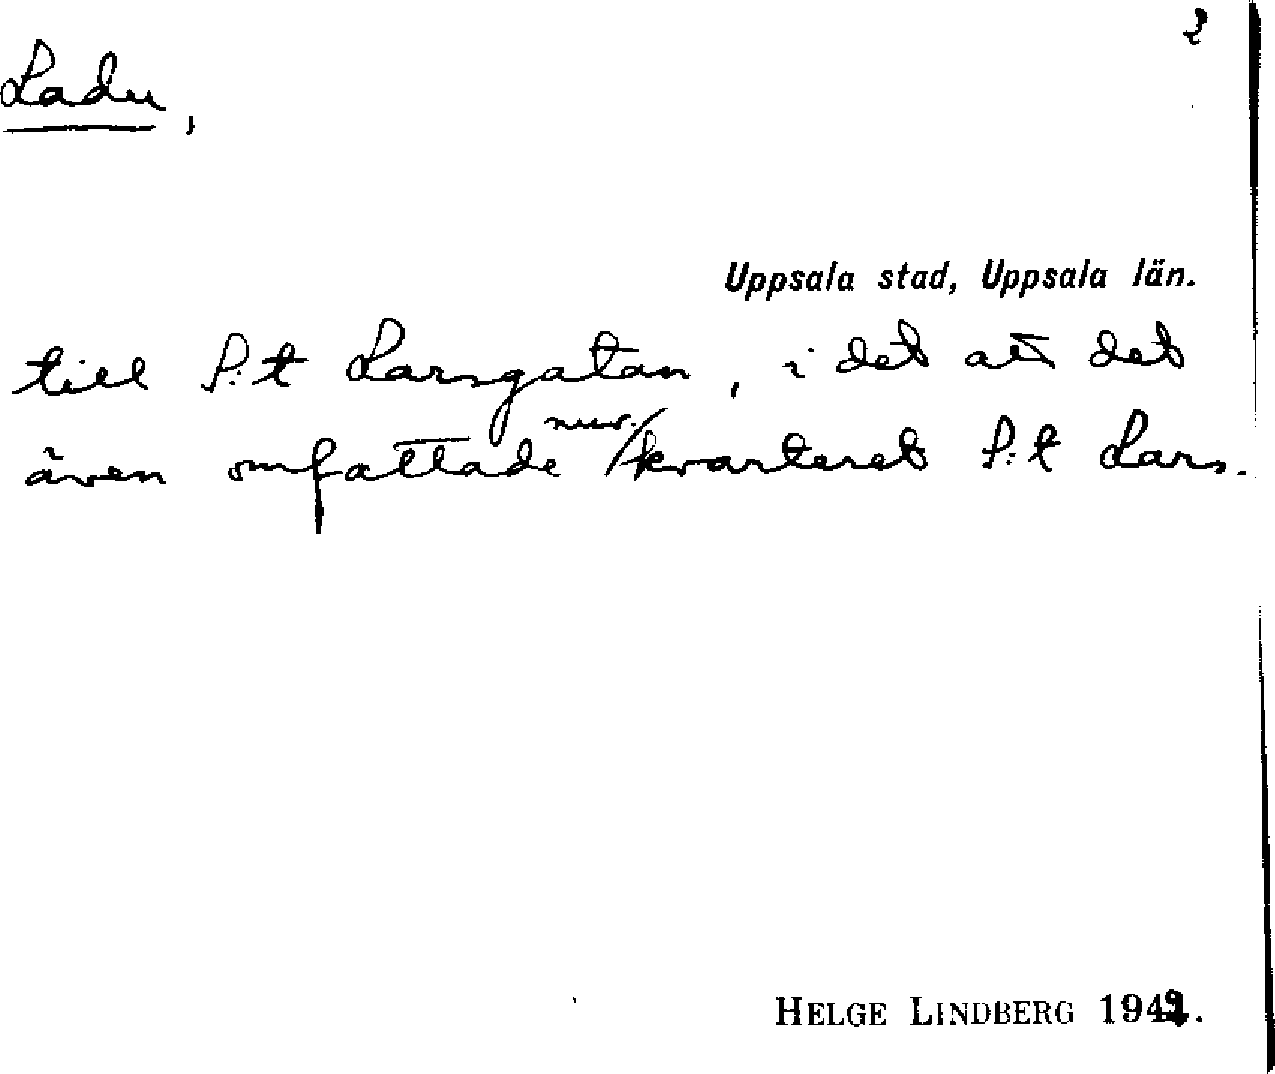 2
Ladu,
Uppsala stad, Uppsala län.
till S:t Larsgatan, i det att det
även omfattade nuv. kvarteret S:t Lars.
HELGE LINDBERG